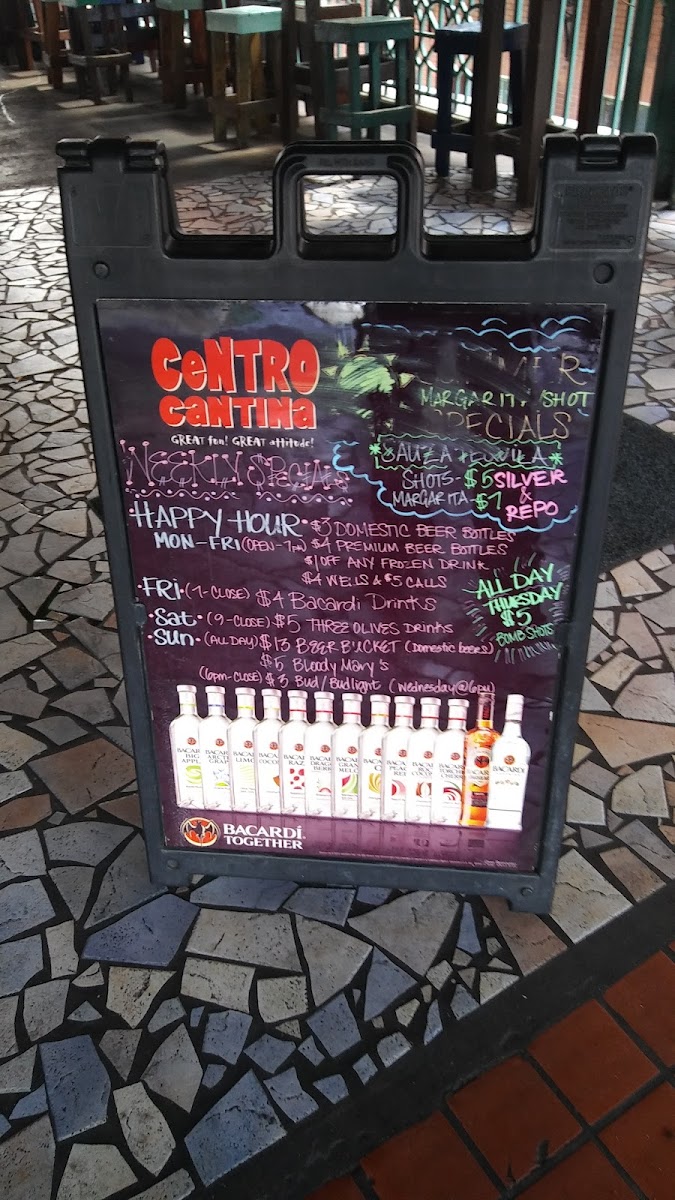 CeNTRO
CaNTINa
GREAT fun! GREAT attitude!
MARGARITA/SHOT
SPECIALS
SAUZA TEQUILA
SHOTS - $5 SILVER
MARGARITA - $7 & REPO
WEEKLY SPECIALS
HAPPY HOUR • $3 DOMESTIC BEER BOTTLES
MON - FRI (OPEN - 7PM) $4 PREMIUM BEER BOTTLES
$1 OFF ANY FROZEN DRINK
$4 WELLS & $5 CALLS
ALL DAY
THURSDAY
$5
BOMB SHOTS
• FRI • (7-CLOSE) $4 Bacardi Drinks
• Sat • (9-CLOSE) $5 THREE OLIVES Drinks
• SUN • (ALL DAY) $13 BEER BUCKET (Domestic beers)
$5 Bloody Mary's
(6pm-CLOSE) $3 Bud/Budlight (Wednesday @ 6PM)
BACARDI
BACARDÍ
TOGETHER